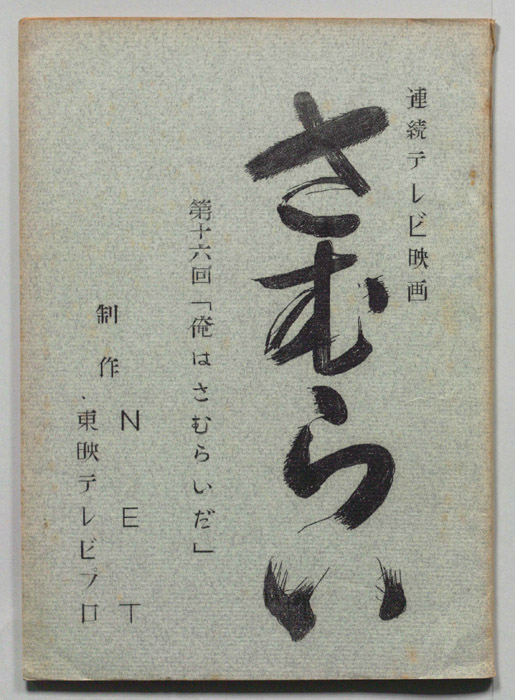 連続テレビ映画
さむらい
第十六回「俺はさむらいだ」
制作
NET
東映テレビプロ